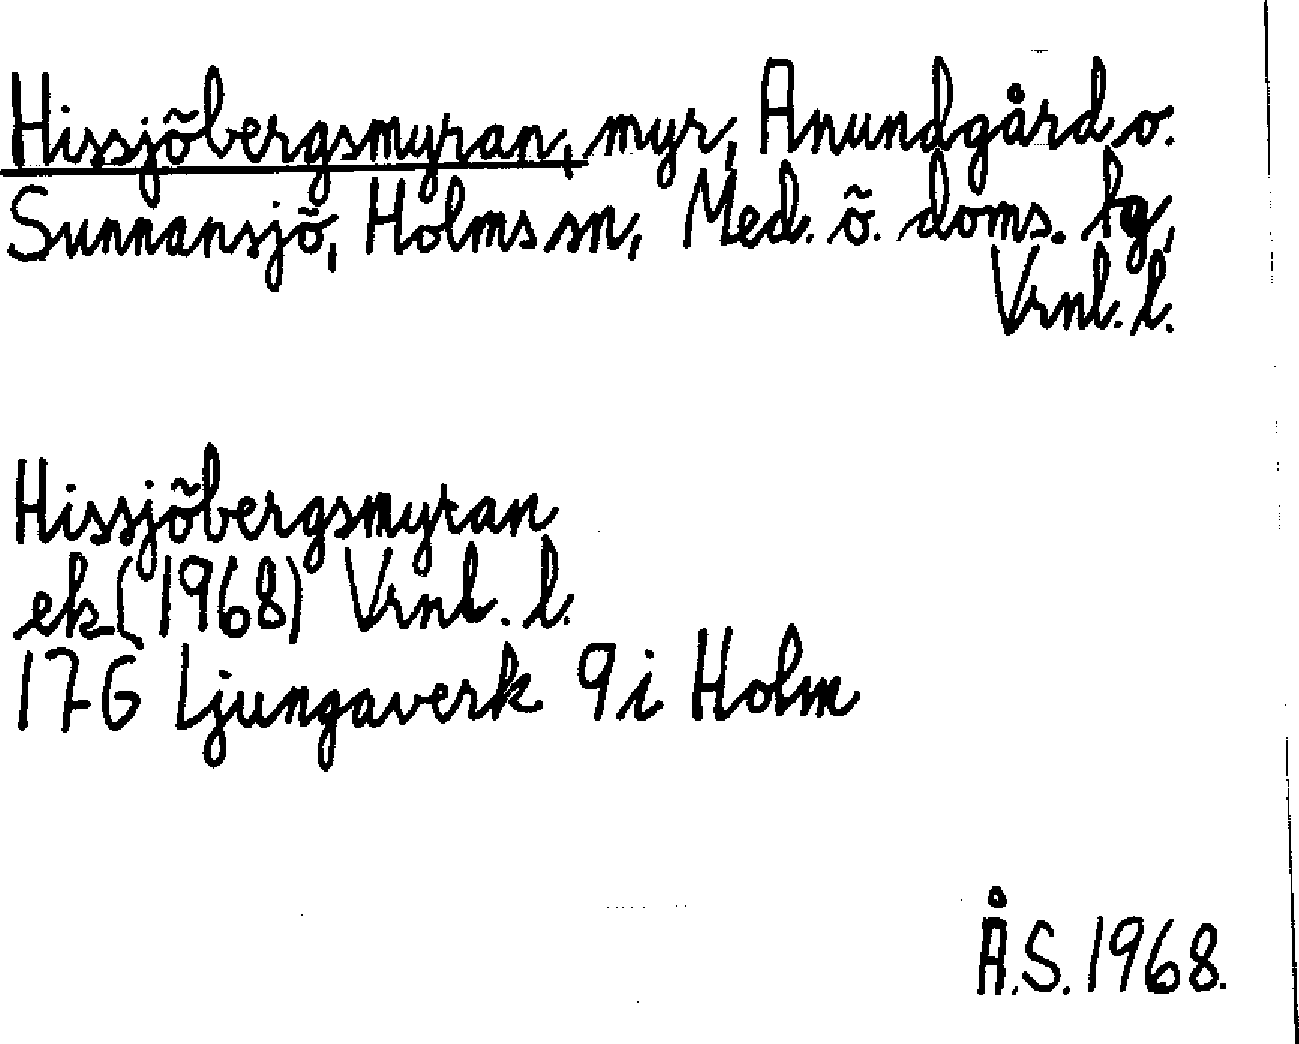 Hissjöbergsmyran, myr, Anundgård o.
Sunnansjö, Holms sn, Med. ö. doms. hg,
Vrnl. l.
Hissjöbergsmyran
ek (1968) Vrnl. l.
17G Ljungaverk 9i Holm
Å.S. 1968.